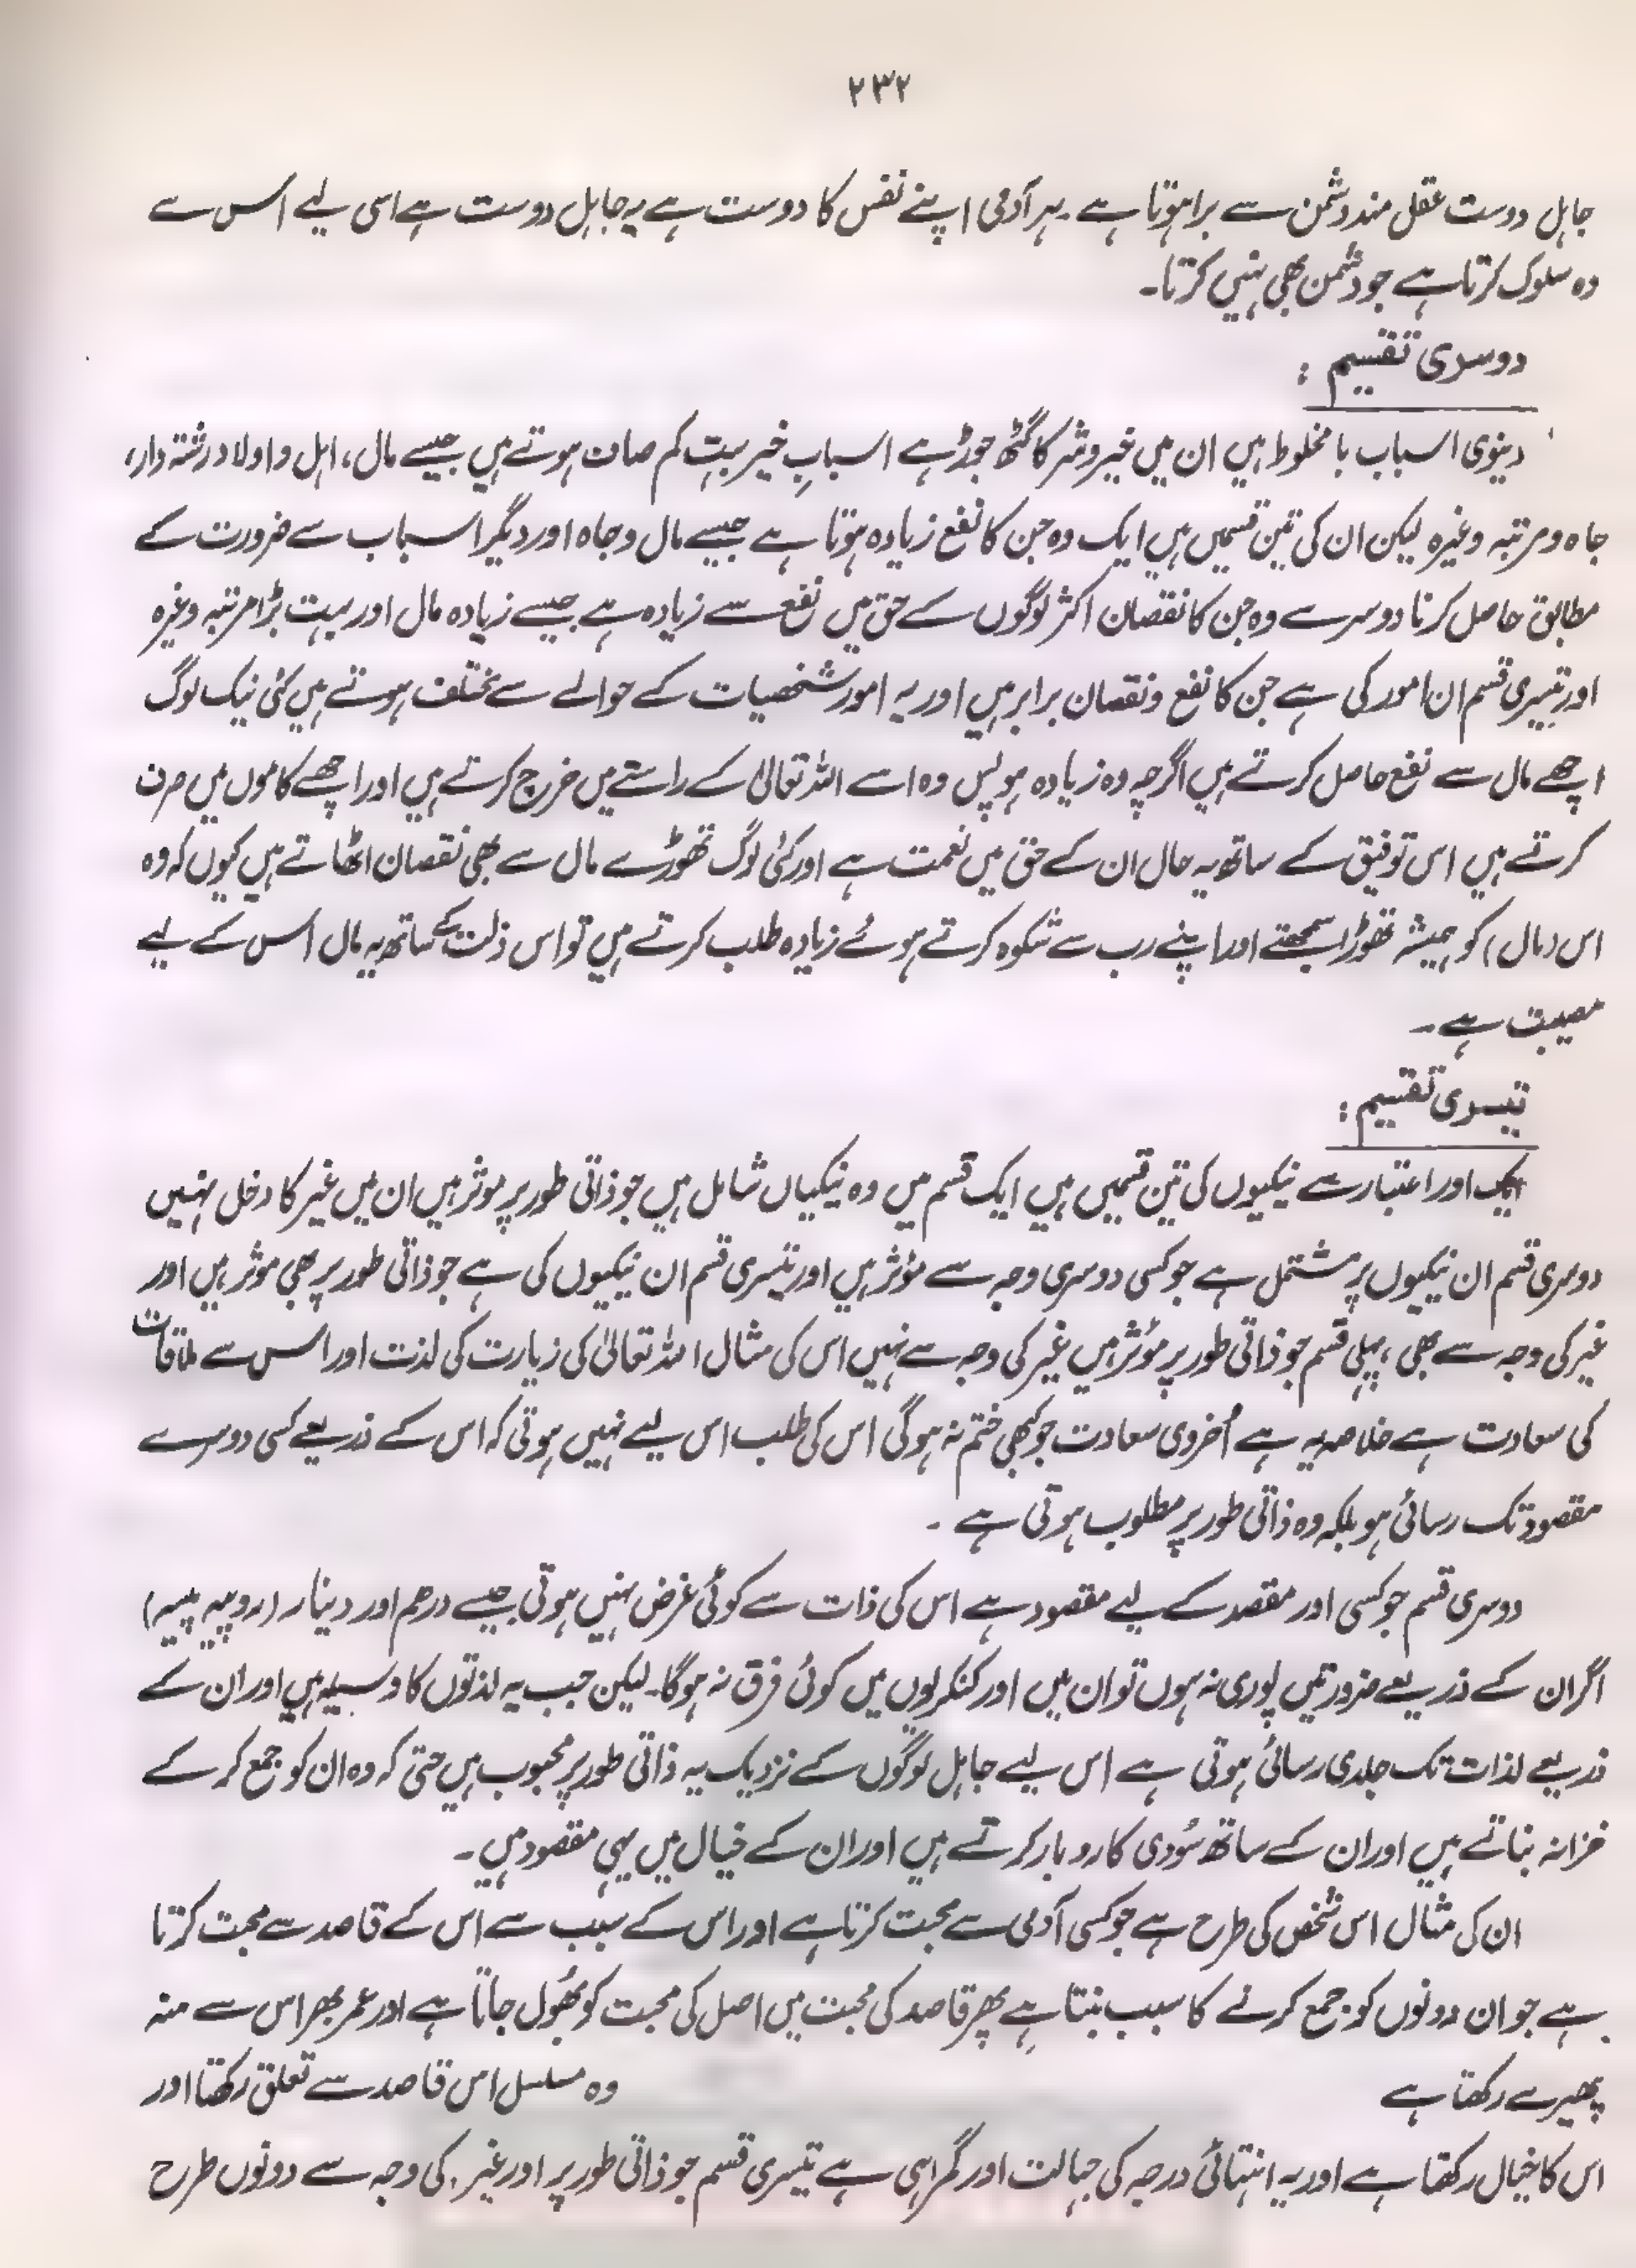 ۲۳۲
جاہل دوست عقل مند دشمن سے برا ہوتا ہے۔ ہر آدمی اپنے نفس کا دوست ہے یہ جاہل دوست ہے اسی لیے اس سے
وہ سلوک کرتا ہے جو دشمن بھی نہیں کرتا۔
دوسری تقسیم :
دینوی اسباب با مخلوط ہیں ان میں خیر و شر کا گٹھ جوڑ ہے اسبابِ خیر بہت کم صاف ہوتے ہیں جیسے مال، اہل و اولاد رشتہ دار،
جاہ و مرتبہ وغیرہ لیکن ان کی تین قسمیں ہیں ایک وہ جن کا نفع زیادہ ہوتا ہے جیسے مال و جاہ اور دیگر اسباب سے ضرورت کے
مطابق حاصل کرنا دوسرے وہ جن کا نقصان اکثر لوگوں کے حق میں نفع سے زیادہ ہے جیسے زیادہ مال اور بہت بڑا مرتبہ وغیرہ
اور تیسری قسم ان امور کی ہے جن کا نفع و نقصان برابر ہیں اور یہ امور شخصیات کے حوالے سے مختلف ہوتے ہیں کئی نیک لوگ
اچھے مال سے نفع حاصل کرتے ہیں اگرچہ وہ زیادہ ہو پس وہ اسے اللہ تعالیٰ کے راستے میں خرچ کرتے ہیں اور اچھے کاموں میں صرف
کرتے ہیں اس توفیق کے ساتھ یہ حال ان کے حق میں نعمت ہے اور کئی لوگ تھوڑے مال سے بھی نقصان اٹھاتے ہیں کیوں کہ وہ
اس (مال) کو ہمیشہ تھوڑا سمجھتے اور اپنے رب سے شکوہ کرتے ہوئے زیادہ طلب کرتے ہیں تو اس ذلت کے ساتھ یہ مال اس کے لیے
مصیبت ہے۔
تیسری تقسیم :
ایک اور اعتبار سے نیکیوں کی تین قسمیں ہیں ایک قسم میں وہ نیکیاں شامل ہیں جو ذاتی طور پر موثر ہیں ان میں غیر کا دخل نہیں
دوسری قسم ان نیکیوں پر مشتمل ہے جو کسی دوسری وجہ سے مؤثر ہیں اور تیسری قسم ان نیکیوں کی ہے جو ذاتی طور پر بھی موثر ہیں اور
غیر کی وجہ سے بھی، پہلی قسم جو ذاتی طور پر مؤثر ہیں غیر کی وجہ سے نہیں اس کی مثال اللہ تعالیٰ کی زیارت کی لذت اور اس سے ملاقات
کی سعادت ہے خلاصہ یہ ہے اُخروی سعادت جو کبھی ختم نہ ہوگی اس کی طلب اس لیے نہیں ہوتی کہ اس کے ذریعے کسی دوسرے
مقصود تک رسائی ہو بلکہ وہ ذاتی طور پر مطلوب ہوتی ہے۔
دوسری قسم جو کسی اور مقصد کے لیے مقصود ہے اس کی ذات سے کوئی غرض نہیں ہوتی جیسے درھم اور دینار (روپیہ پیسہ)
اگر ان کے ذریعے ضرورتیں پوری نہ ہوں تو ان میں اور کنکریوں میں کوئی فرق نہ ہوگا۔ لیکن جب یہ لذتوں کا وسیلہ ہیں اور ان کے
ذریعے لذات تک جلدی رسائی ہوتی ہے اس لیے جاہل لوگوں کے نزدیک یہ ذاتی طور پر محبوب ہیں حتیٰ کہ وہ ان کو جمع کر کے
خزانہ بناتے ہیں اور ان کے ساتھ سُودی کاروبار کرتے ہیں اور ان کے خیال میں یہی مقصود ہیں۔
ان کی مثال اس شخص کی طرح ہے جو کسی آدمی سے محبت کرتا ہے اور اس کے سبب سے اس کے قاصد سے محبت کرتا
ہے جو ان دونوں کو جمع کرنے کا سبب بنتا ہے پھر قاصد کی محبت میں اصل کی محبت کو بھُول جاتا ہے اور عمر بھر اس سے منہ
پھیرے رکھتا ہے وہ مسلسل اس قاصد سے تعلق رکھتا اور
اس کا خیال رکھتا ہے اور یہ انتہائی درجہ کی جہالت اور گمراہی ہے تیسری قسم جو ذاتی طور پر اور غیر کی وجہ سے دونوں طرح